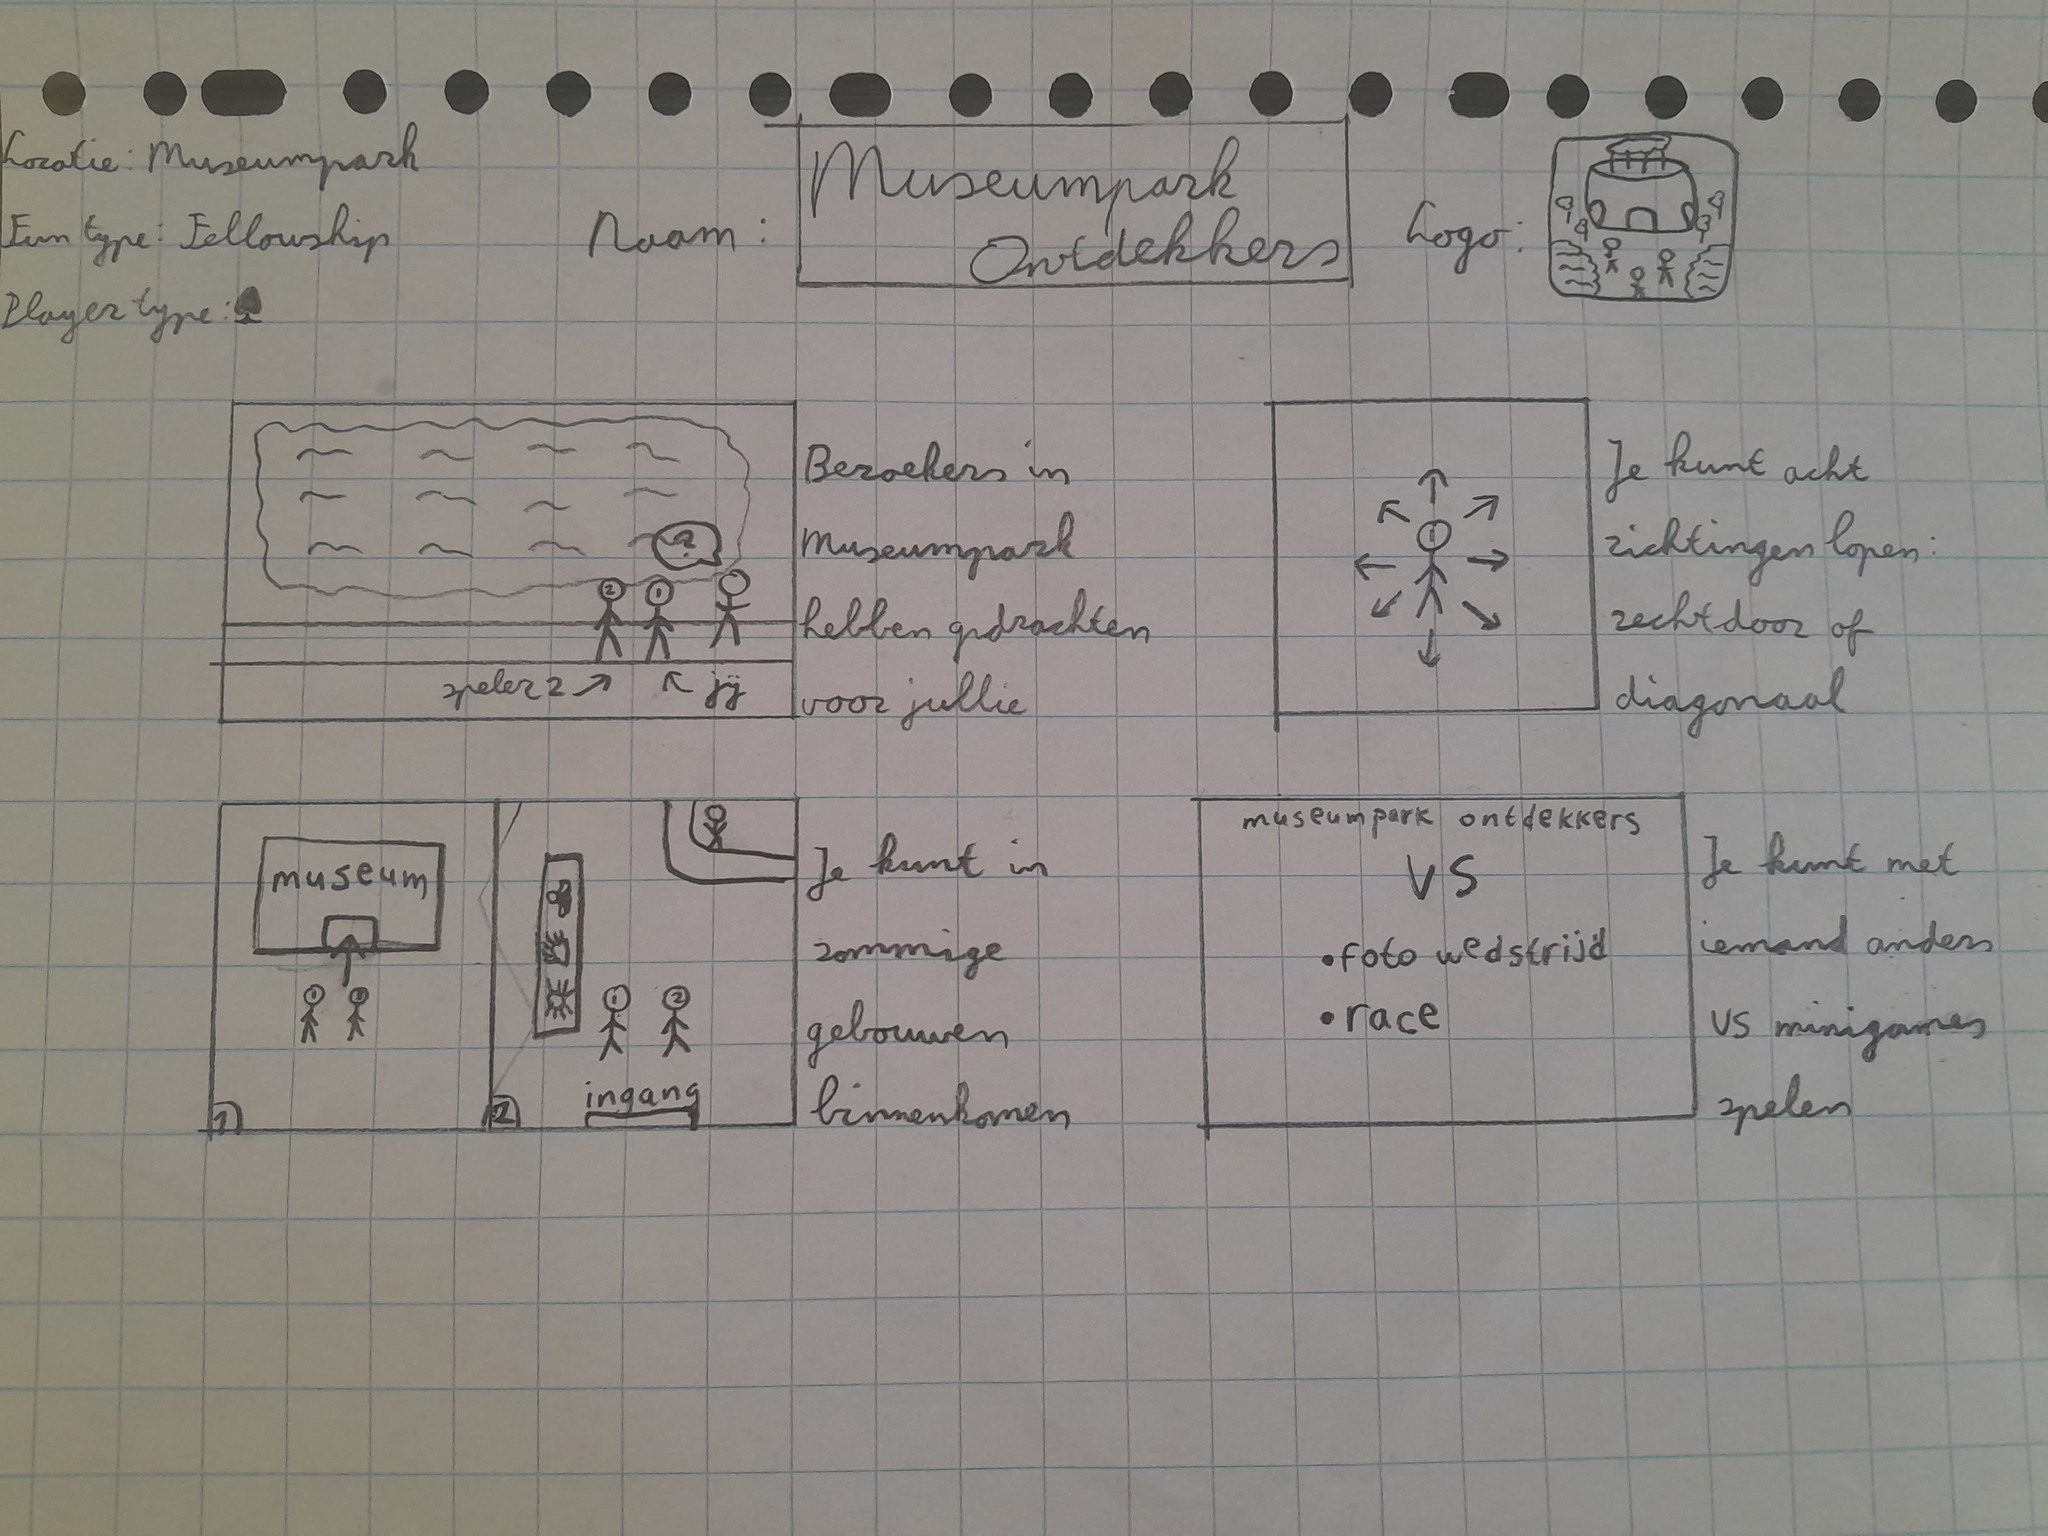 Locatie: Museumpark
Fun type: Fellowship
Player type: ♠
Naam:
Museumpark
Ontdekkers
Logo:
?
2
1
speler 2
jij
Bezoekers in
Museumpark
hebben gedrachten
voor jullie
1
Je kunt acht
richtingen lopen:
rechtdoor of
diagonaal
museum
1
2
1
1
2
ingang
2
Je kunt in
sommige
gebouwen
binnenkomen
museumpark ontdekkers
VS
•foto wedstrijd
•race
Je kunt met
iemand anders
VS minigames
spelen